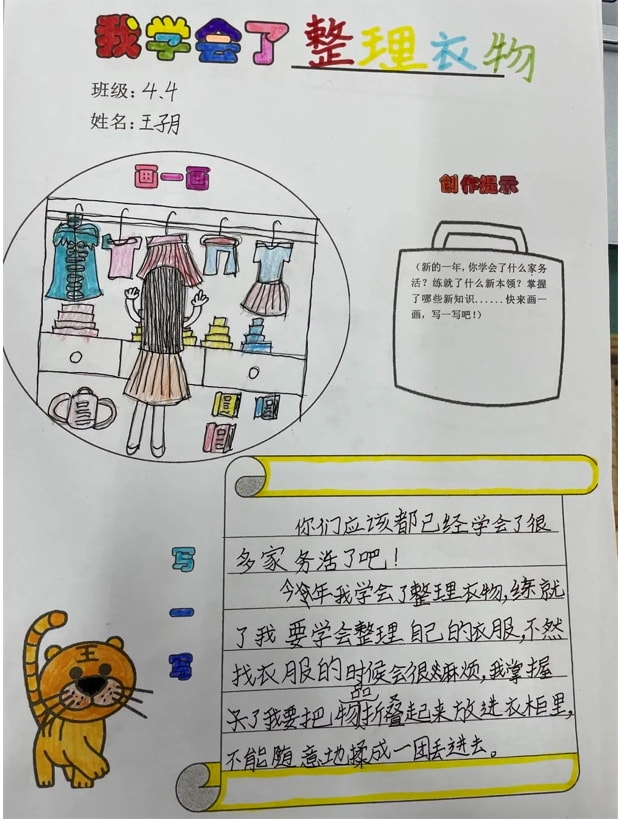 我学会了整理衣物
班级：4.4
姓名：王子月
画一画
创作提示
（新的一年，你学会了什么家务
活？练就了什么新本领？掌握
了哪些新知识......快来画一
画，写一写吧！）
写一写
你们应该都已经学会了很
多家务活了吧！
今年我学会了整理衣物，练就
了我要学会整理自己的衣服，不然
找衣服的时候会很麻烦，我掌握
了我要把物品折叠起来放进衣柜里，
不能随意地揉成一团丢进去。
王